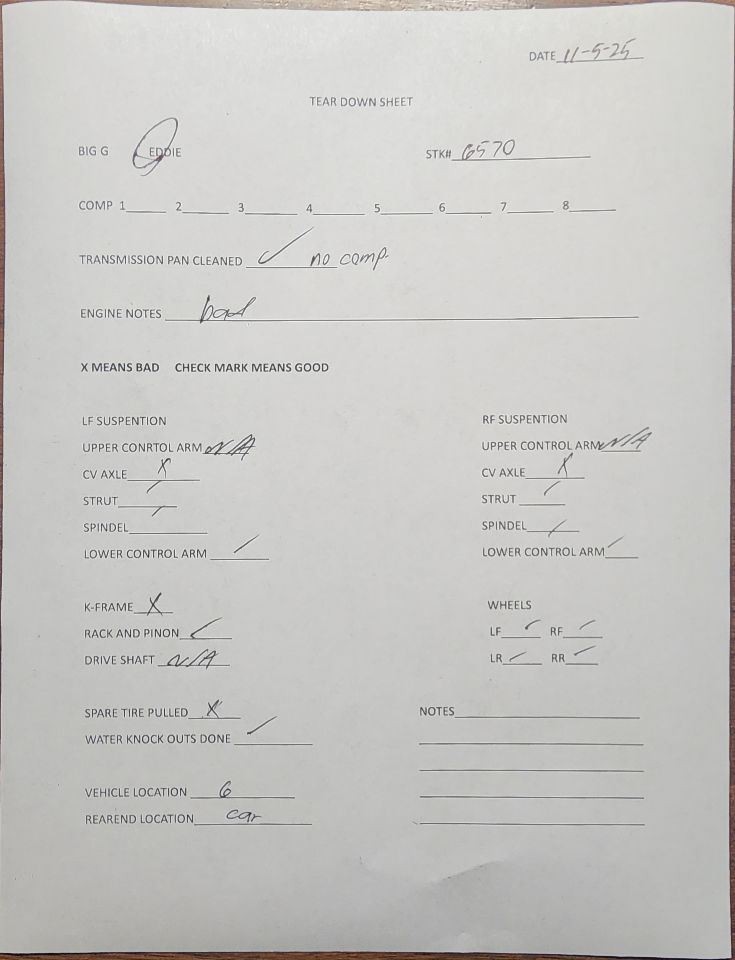 DATE 11-5-25
TEAR DOWN SHEET
BIG G EDDIE STK# 6570
COMP 1 2 3 4 5 6 7 8
TRANSMISSION PAN CLEANED ✓ no comp
ENGINE NOTES bad
X MEANS BAD CHECK MARK MEANS GOOD
LF SUSPENTION
UPPER CONRTOL ARM N/A
CV AXLE X
STRUT ✓
SPINDEL ✓
LOWER CONTROL ARM ✓
RF SUSPENTION
UPPER CONTROL ARM N/A
CV AXLE X
STRUT ✓
SPINDEL ✓
LOWER CONTROL ARM ✓
K-FRAME X
RACK AND PINON ✓
DRIVE SHAFT N/A
WHEELS
LF ✓ RF ✓
LR ✓ RR ✓
SPARE TIRE PULLED X
WATER KNOCK OUTS DONE ✓
NOTES
VEHICLE LOCATION 6
REAREND LOCATION car